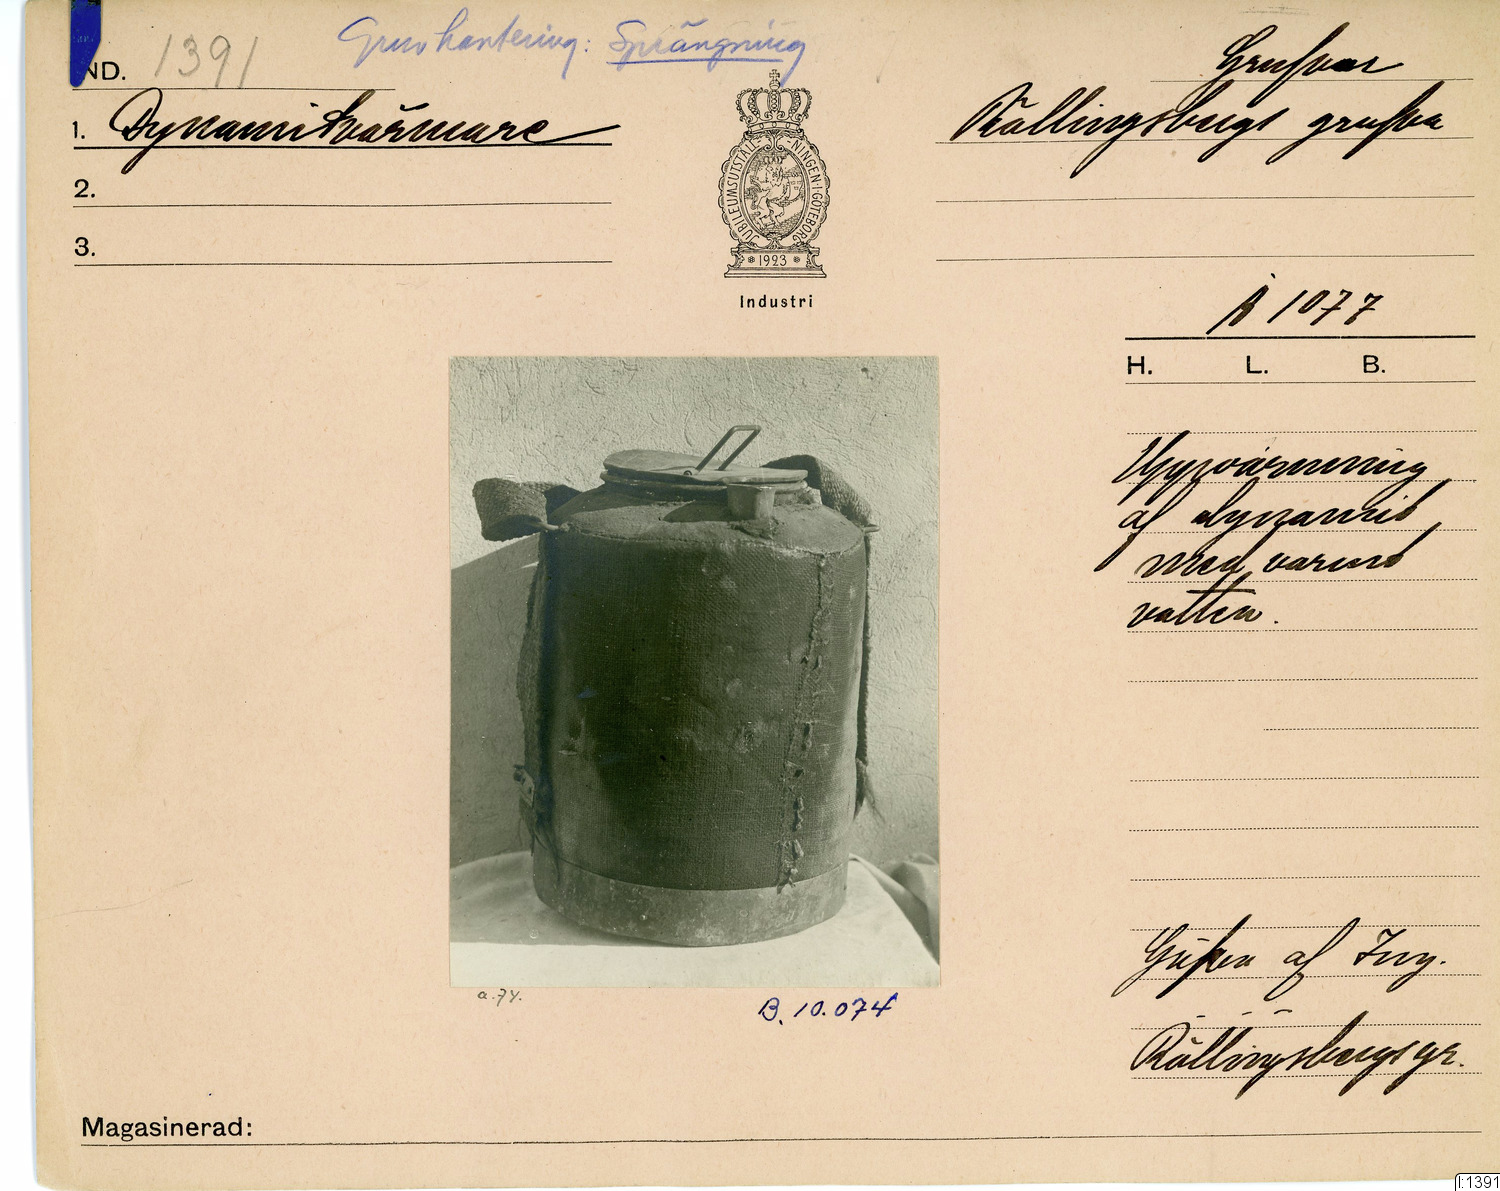 Gruvhantering: Sprängning
ND. 1391
1. Dynamitvärmare
2.
3.
JUBILEUMSUTSTÄLLNINGEN I GÖTEBORG
1923
Industri
Grufvor
Rällingsbergs grufva
A 1077
H. L. B.
Uppvärmning
af dynamit
med varmt
vatten.
Gåfva af Ing.
Rällingsbergs gr.
a.74.
B. 10.074
Magasinerad:
I:1391